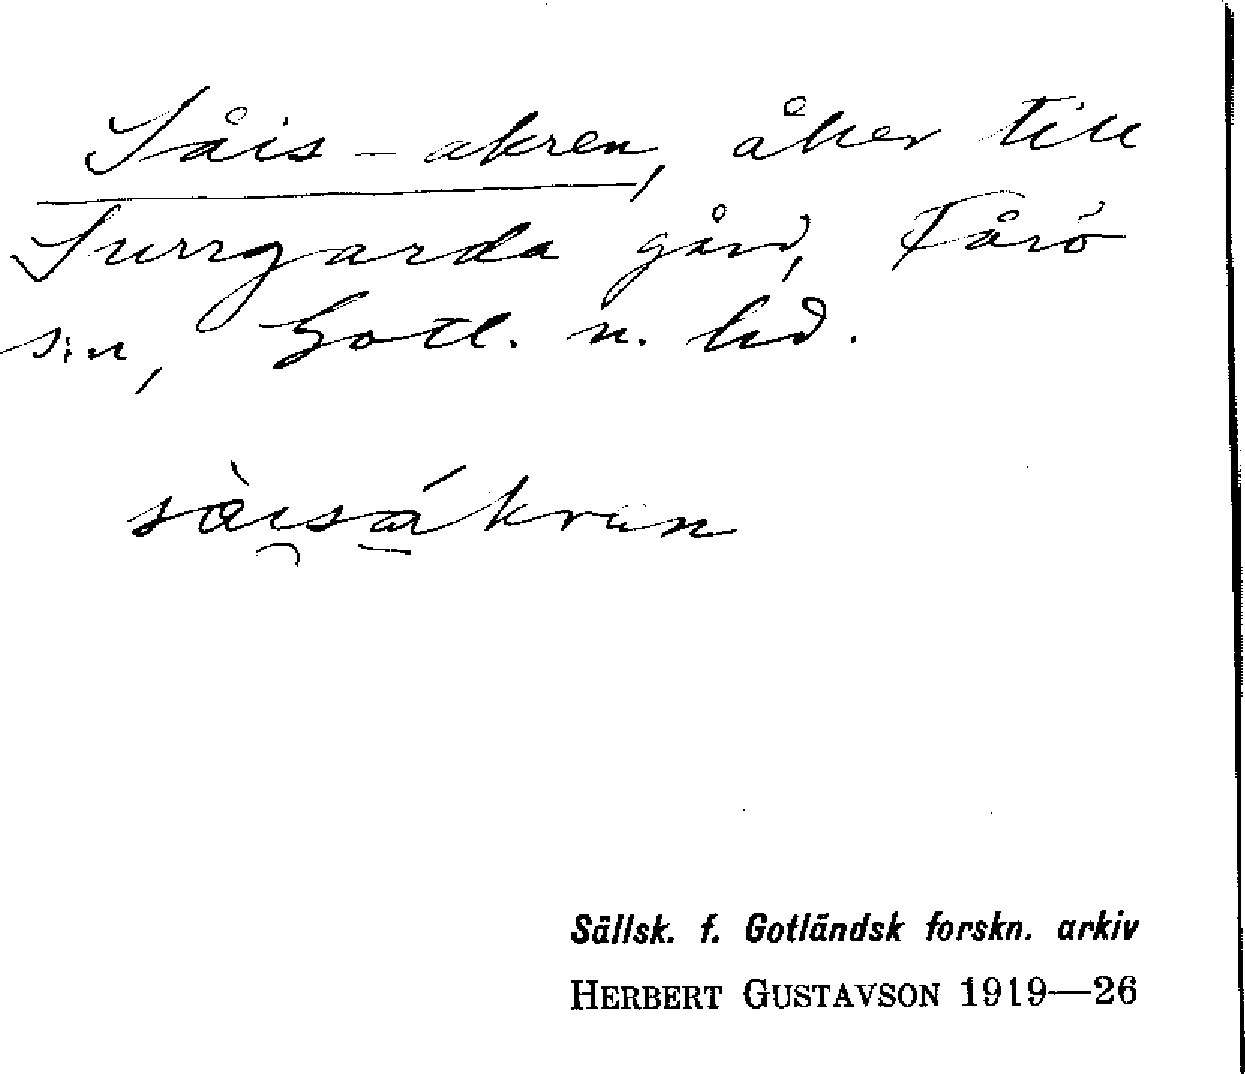 Såis-akren, åker till
Surrgarda gård, Fårö
s:n, Gotl. n. hd.
sàisákren
Sällsk. f. Gotländsk forskn. arkiv
HERBERT GUSTAVSON 1919—26